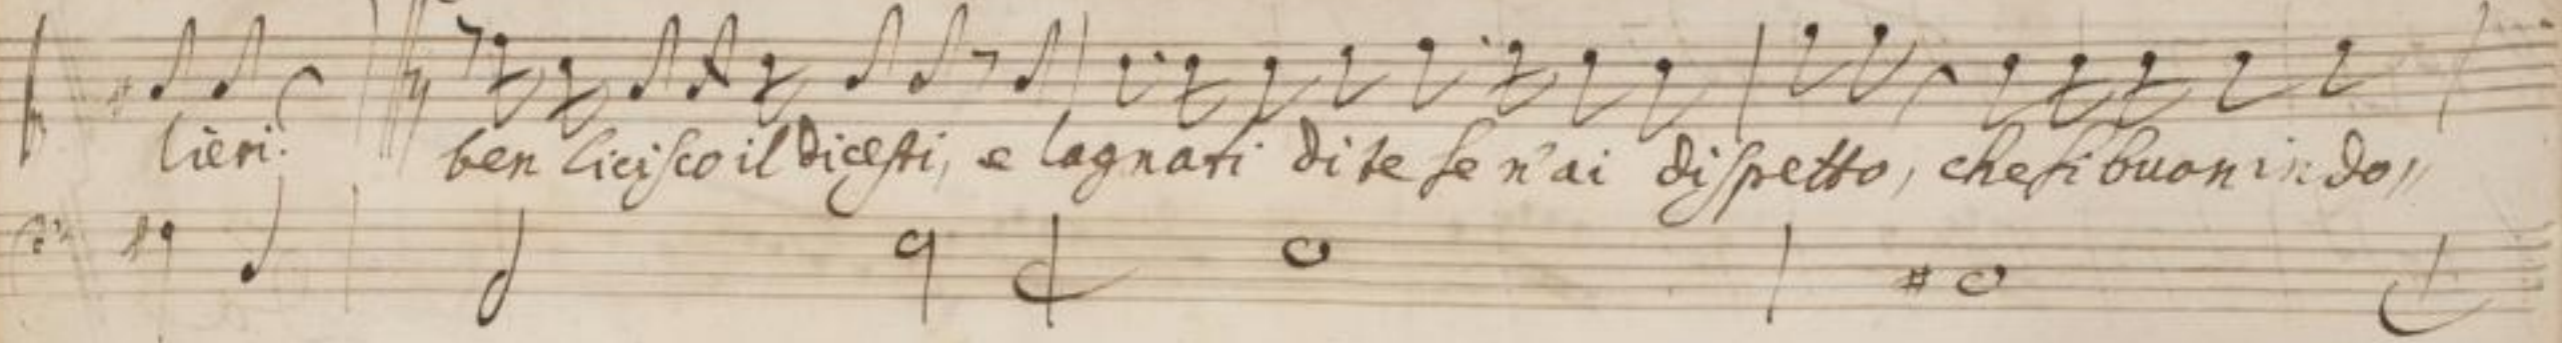 lieri. ben liciſco il diceſti, e lagnati di te ſe n'ai diſpetto, che ſi buon indo,,